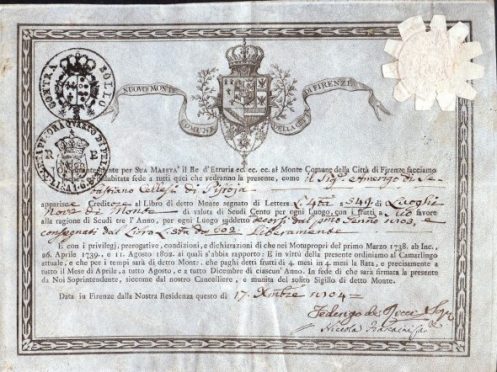 CONTRA BOLLO
NUOVO MONTE COMUNE DELLA CITTÀ DI FIRENZE
per SUA MAESTA' il Re d'Etruria ec. ec. ec. al Monte Comune della Città di Firenze facciamo
indubitata fede a tutti quei che vedranno la presente, come il Sig.e Amerigo di Se-
bastiano Cellesi di Pistoja
apparisce Creditore al Libro di detto Monte segnato di Lettera L: 4ta 549 di Luoghi
Nove di Monte di valuta di Scudi Cento per ogni Luogo, con i frutti a suo favore
alla ragione di Scudi tre l'Anno, per ogni Luogo suddetto
consegnati dal Libro L: 3za 602 Liberamente
E con i privilegj, prerogative, condizioni, e dichiarazioni di che nei Motuproprj del primo Marzo 1738. ab Inc.
26. Aprile 1739. e 11. Agosto 1802. ai quali s'abbia rapporto: E in virtù della presente ordiniamo al Camarlingo
attuale, e che pe' tempi sarà di detto Monte, che paghi detti frutti di 4 mesi in 4 mesi la Rata, e precisamente a
tutto il Mese di Aprile, a tutto Agosto, e a tutto Dicembre di ciascun' Anno. In fede di che sarà firmata la presente
da Noi Soprintendente, siccome dal nostro Cancelliere, e munita del solito Sigillo di detto Monte.
Data in Firenze dalla Nostra Residenza questo dì 17. Xmbre 1804
Federigo de' Ricci
Niccola